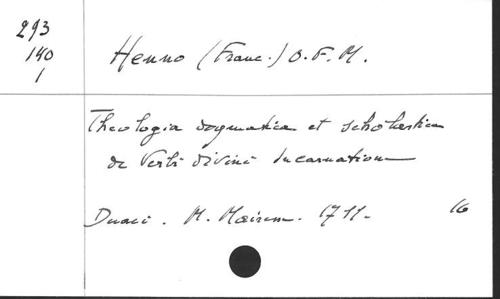 293
140
1
Henno (Franc.) O.F.M.
Theologia dogmatica et scholastica
de Verbi divini Incarnatione
Duaci. M. Mairesse. 1711. 16